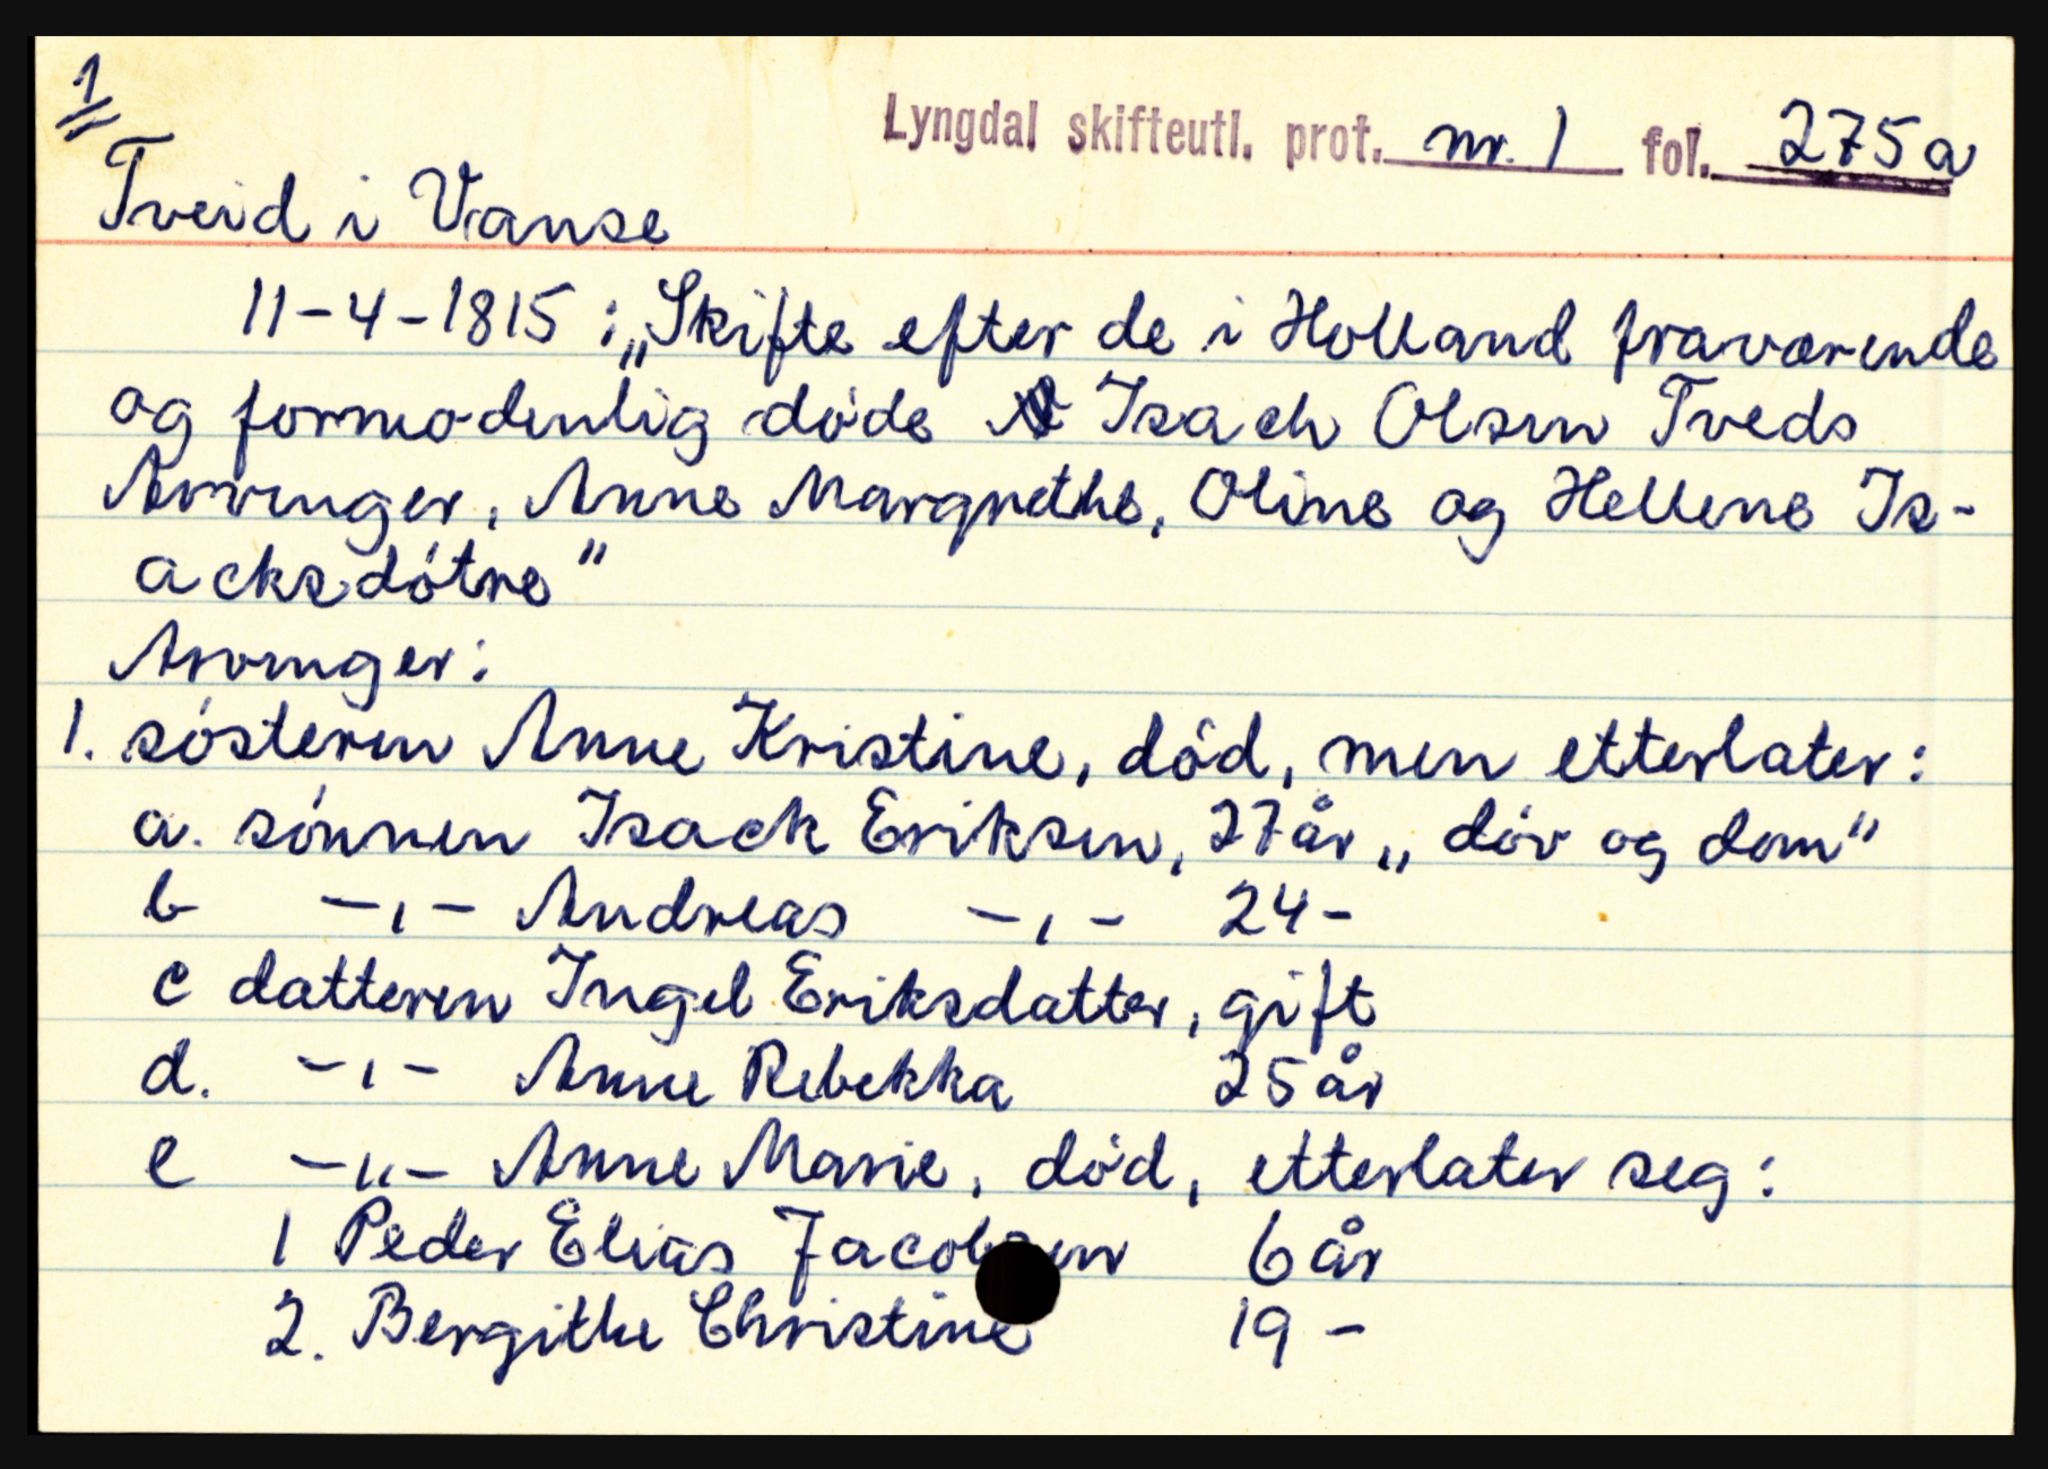 1
Lyngdal skifteutl. prot. nr. 1 fol. 275a
Tveid i Vanse
11-4-1815: „Skifte efter de i Holland fraværende
og formodenlig døde Isach Olsen Tveds
Arvinger, Anne Margrethe, Oline og Hellene Is-
acksdøtre"
Arvinger:
1. søsteren Anne Kristine, død, men etterlater:
a. sønnen Isack Eriksen, 27 år „døv og dom"
b -,- Andreas -,- 24-
c datteren Ingel Eriksdatter, gift
d. -,- Anne Rebekka 25 år
e -„- Anne Marie, død, etterlater seg:
1 Peder Elias Jacobsen 6 år
2. Bergithe Christine 19 -